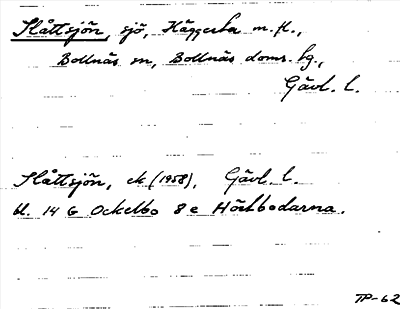 Slåttsjön, sjö, Häggesta m.fl.,
Bollnäs sn, Bollnäs doms. hg.,
Gävl. l.
Slåttsjön, ek (1958), Gävl. l.
bl. 14 G Ockelbo 8 e Hörbodarna.
TP-62